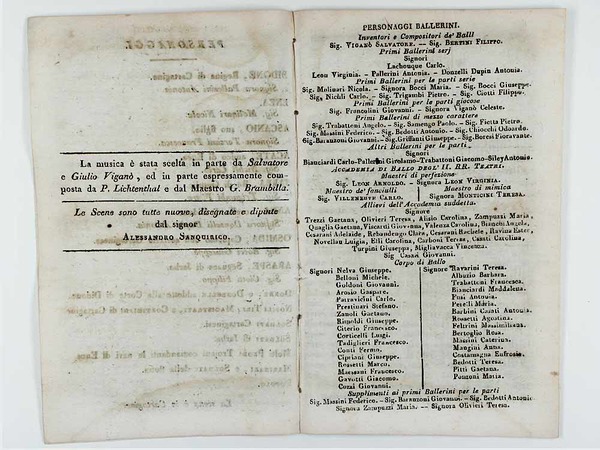 La musica è stata scelta in parte da Salvatore
e Giulio Viganò, ed in parte espressamente com-
posta da P. Lichtenthal e dal Maestro G. Brambilla.
Le Scene sono tutte nuove, disegnate e dipinte
dal signor
ALESSANDRO SANQUIRICO.
PERSONAGGI BALLERINI.
Inventori e Compositori de' Balli
Sig. VIGANÒ SALVATORE. — Sig. BERTINI FILIPPO.
Primi Ballerini serj
Signori
Lachouque Carlo.
Leon Virginia. - Pallerini Antonia. - Donzelli Dupin Antonia.
Primi Ballerini per le parti serie
Sig. Molinari Nicola. - Signora Bocci Maria. - Sig. Bocci Giuseppe.
Sig. Nichli Carlo. - Sig. Trigambi Pietro. - Sig. Ciotti Filippo.
Primi Ballerini per le parti giocose
Sig. Francolini Giovanni. - Signora Viganò Celeste.
Primi Ballerini di mezzo carattere
Sig. Trabattoni Angelo. - Sig. Samengo Paolo. - Sig. Fietta Pietro.
Sig. Massini Federico. - Sig. Bedotti Antonio. - Sig. Chiocchi Odoardo.
Sig. Baranzoni Giovanni. - Sig. Griffanti Giuseppe. - Sig. Borresi Fioravante.
Altri Ballerini per le parti
Signori
Bianciardi Carlo-Pallerini Girolamo-Trabattoni Giacomo-Siley Antonio.
ACCADEMIA DI BALLO DEGL' II. RR. TEATRI.
Maestri di perfezione
Sig. LEON ARNOLDO. - Signora LEON VIRGINIA.
Maestro de' fanciulli Maestro di mimica
Sig. VILLENEUVE CARLO. Signora MONTICINI TERESA.
Allievi dell' Accademia suddetta.
Signore
Trezzi Gaetana, Olivieri Teresa, Alisio Carolina, Zampuzzi Maria,
Quaglia Gaetana, Viscardi Giovanna, Valenza Carolina, Bianchi Angela,
Cesarani Adelaide, Rebaudengo Clara, Cesarani Rachele, Ravina Ester,
Novellau Luigia, Elli Carolina, Carboni Teresa, Casati Carolina,
Turpini Giuseppa, Migliavacca Vincenza.
Sig. Casati Giovanni.
Corpo di Ballo
Signori Nelva Giuseppe.
Belloni Michele.
Goldoni Giovanni.
Arosio Gaspare.
Parravicini Carlo.
Prestinari Stefano.
Zanoli Gaetano.
Rimoldi Giuseppe.
Citerio Francesco.
Corticelli Luigi.
Tadiglieri Francesco.
Conti Fermo.
Cipriani Giuseppe.
Rossetti Marco.
Massani Francesco.
Gavotti Giacomo.
Cozzi Giovanni.
Signore Ravarini Teresa.
Albuzio Barbara.
Trabattoni Francesca.
Bianciardi Maddalena.
Fusi Antonia.
Petelli Maria.
Barbini Casati Antonia.
Rossetti Agostina.
Feltrini Massimiliana.
Bertoglio Rosa.
Massini Caterina.
Mangini Anna.
Costamagna Eufrosia.
Bedotti Teresa.
Pitti Gaetana.
Ponzoni Maria.
Supplimenti ai primi Ballerini per le parti
Sig. Massini Federico. - Sig. Baranzoni Giovanni. - Sig. Bedotti Antonio
Signora Zampuzzi Maria. — Signora Olivieri Teresa.